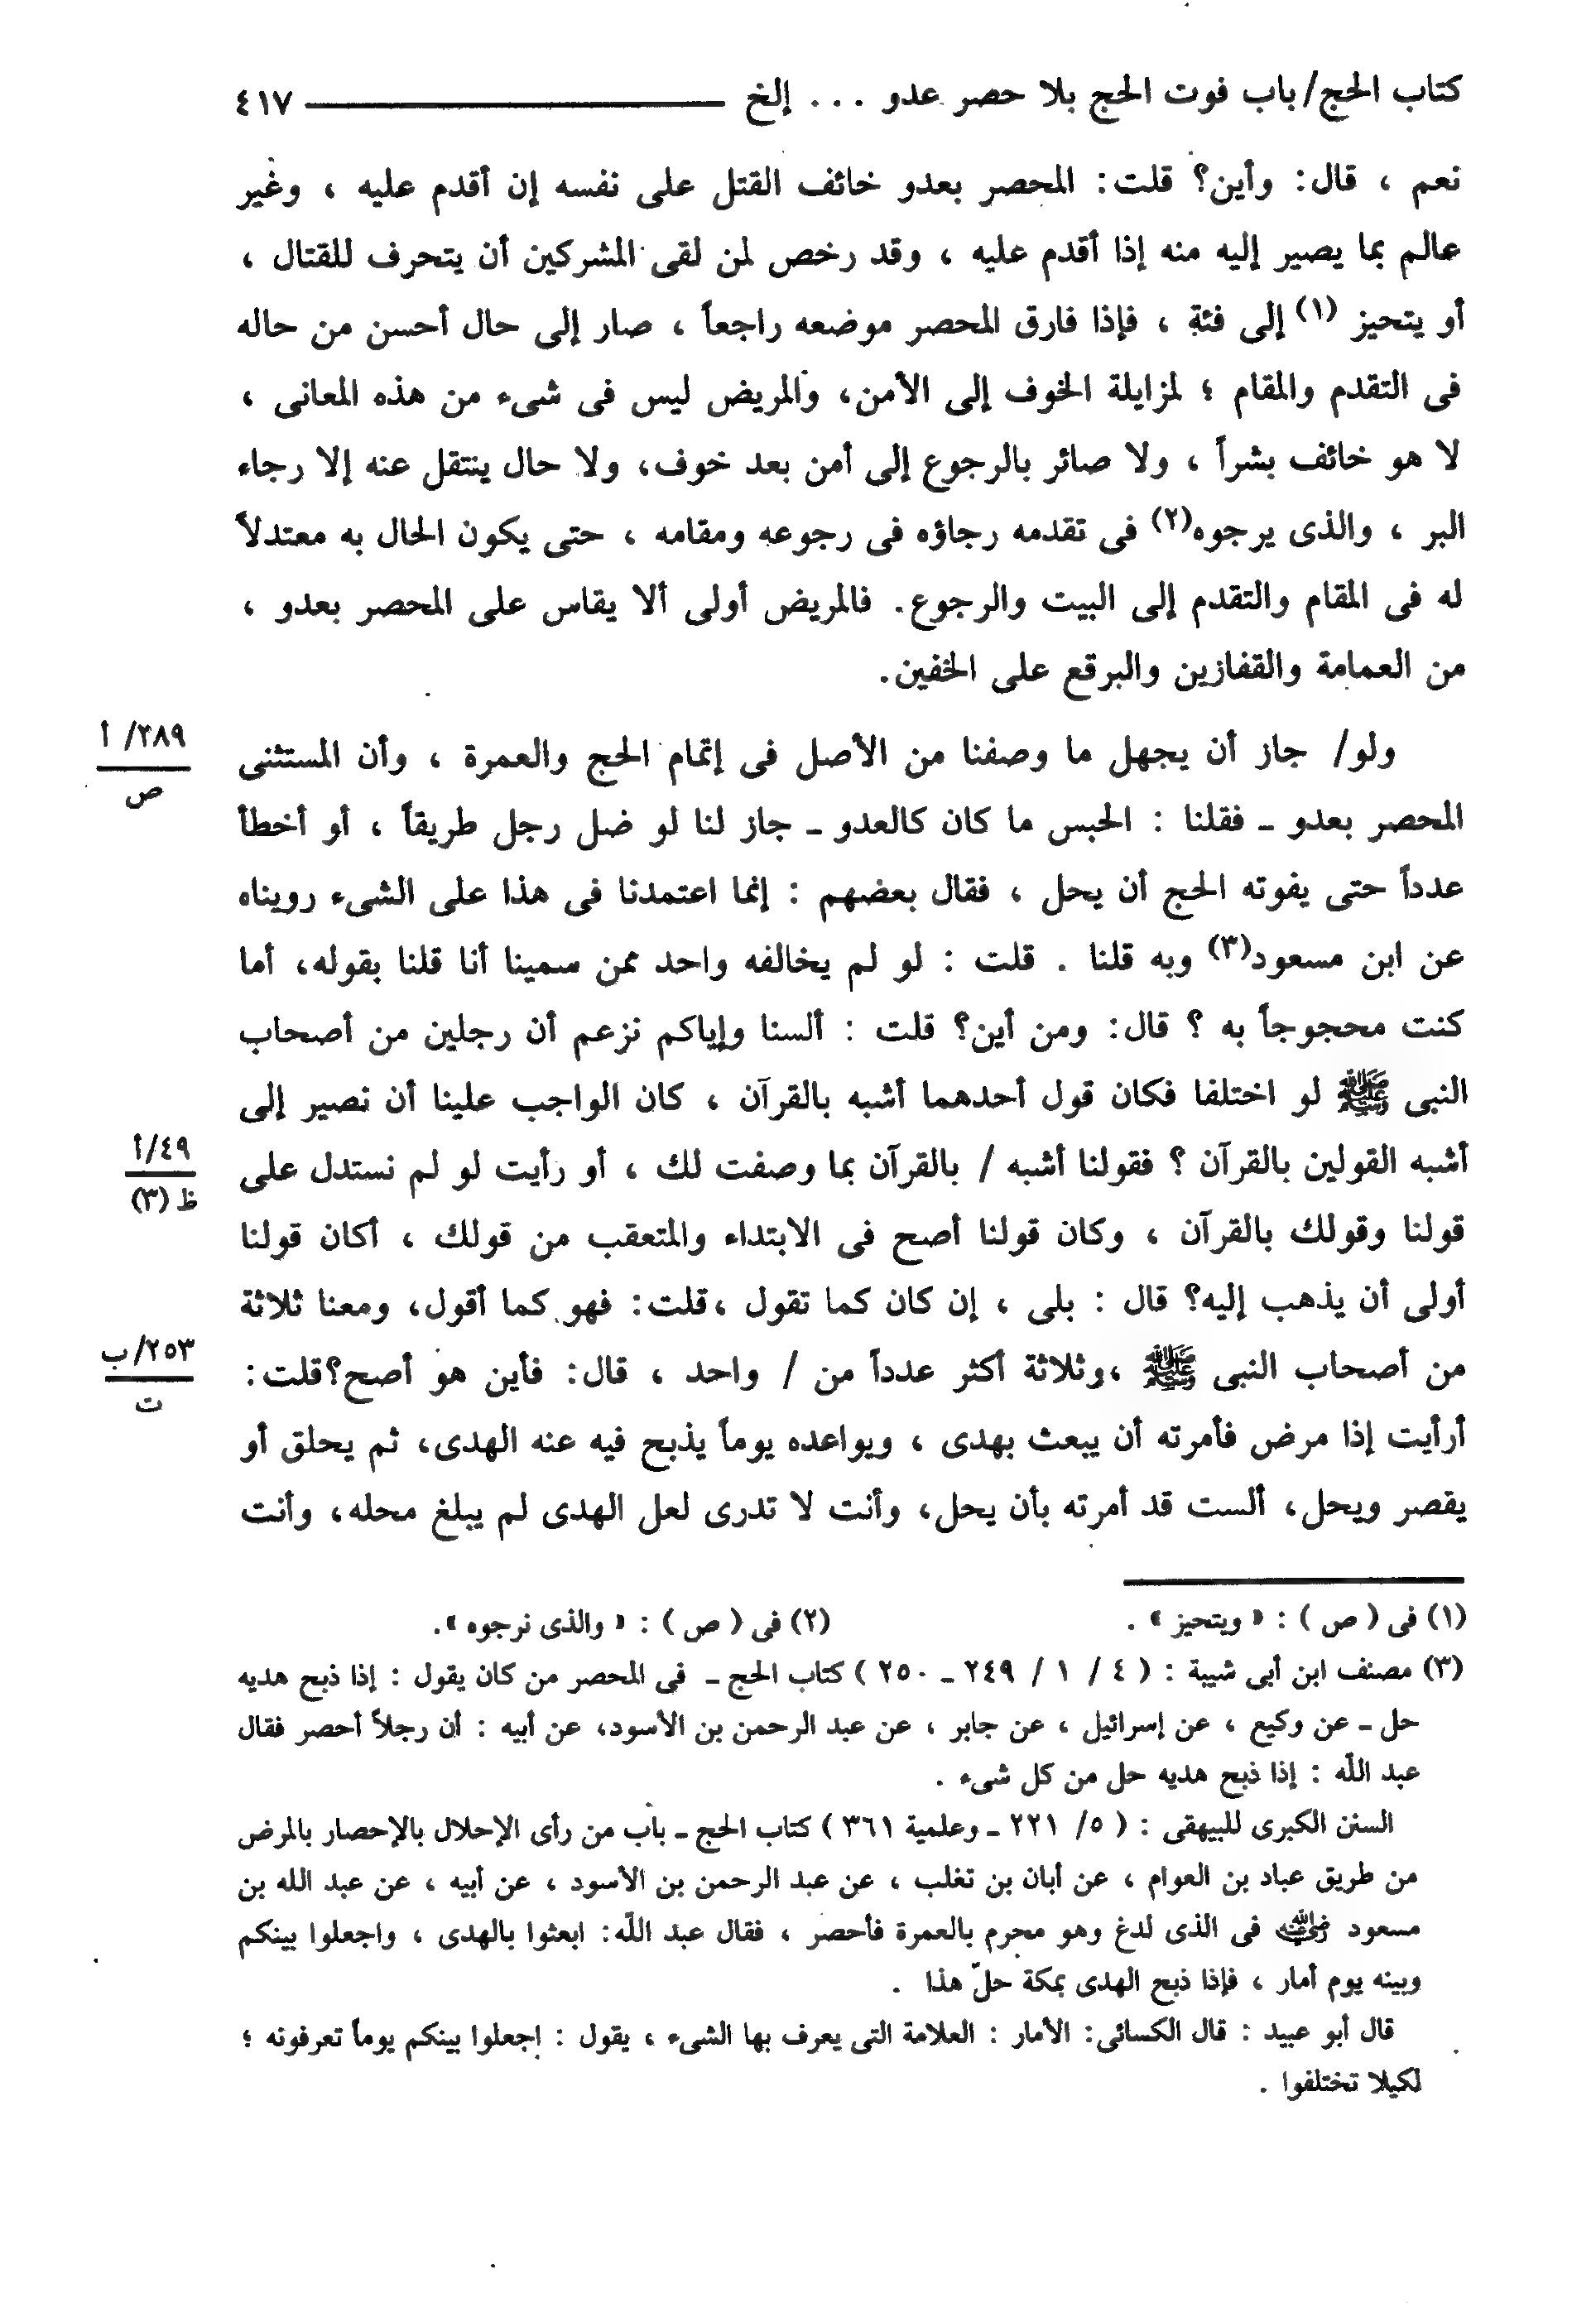 كتاب الحج/ باب فوت الحج بلا حصر عدو ... إلخ ٤١٧
نعم ، قال: وأين؟ قلت: المحصر بعدو خائف القتل على نفسه إن أقدم عليه ، وغير
عالم بما يصير إليه منه إذا أقدم عليه ، وقد رخص لمن لقى المشركين أن يتحرف للقتال ،
أو يتحيز (١) إلى فئة ، فإذا فارق المحصر موضعه راجعاً ، صار إلى حال أحسن من حاله
فى التقدم والمقام ؛ لمزايلة الخوف إلى الأمن، والمريض ليس فى شىء من هذه المعانى ،
لا هو خائف بشراً ، ولا صائر بالرجوع إلى أمن بعد خوف، ولا حال ينتقل عنه إلا رجاء
البر ، والذى يرجوه(٢) فى تقدمه رجاؤه فى رجوعه ومقامه ، حتى يكون الحال به معتدلاً
له فى المقام والتقدم إلى البيت والرجوع. فالمريض أولى ألا يقاس على المحصر بعدو ،
من العمامة والقفازين والبرقع على الخفين.
ولو/ جاز أن يجهل ما وصفنا من الأصل فى إتمام الحج والعمرة ، وأن المستثنى
٢٨٩/ أ
ص
المحصر بعدو ـ فقلنا : الحبس ما كان كالعدو ـ جاز لنا لو ضل رجل طريقاً ، أو أخطأ
عدداً حتى يفوته الحج أن يحل ، فقال بعضهم : إنما اعتمدنا فى هذا على الشىء رويناه
عن ابن مسعود(٣) وبه قلنا . قلت : لو لم يخالفه واحد ممن سمينا أنا قلنا بقوله، أما
كنت محجوجاً به ؟ قال: ومن أين؟ قلت : ألسنا وإياكم نزعم أن رجلين من أصحاب
النبى ﷺ لو اختلفا فكان قول أحدهما أشبه بالقرآن ، كان الواجب علينا أن نصير إلى
أشبه القولين بالقرآن ؟ فقولنا أشبه / بالقرآن بما وصفت لك ، أو رأيت لو لم نستدل على
٤٩/أ
ظ (٣)
قولنا وقولك بالقرآن ، وكان قولنا أصح فى الابتداء والمتعقب من قولك ، أكان قولنا
أولى أن يذهب إليه؟ قال : بلى ، إن كان كما تقول ،قلت: فهو كما أقول، ومعنا ثلاثة
من أصحاب النبى ﷺ ،وثلاثة أكثر عدداً من / واحد ، قال: فأين هو أصح؟قلت:
٢٥٣/ب
ت
أرأيت إذا مرض فأمرته أن يبعث بهدى ، ويواعده يوماً يذبح فيه عنه الهدى، ثم يحلق أو
يقصر ويحل، ألست قد أمرته بأن يحل، وأنت لا تدرى لعل الهدى لم يبلغ محله، وأنت
(١) فى ( ص ) : « ويتحيز » . (٢) فى ( ص ) : « والذى نرجوه ».
(٣) مصنف ابن أبى شيبة : ( ٤ / ١ / ٢٤٩ ـ ٢٥٠ ) كتاب الحج ـ فى المحصر من كان يقول : إذا ذبح هديه
حل ـ عن وكيع ، عن إسرائيل ، عن جابر ، عن عبد الرحمن بن الأسود، عن أبيه : أن رجلاً أحصر فقال
عبد اللّه : إذا ذبح هديه حل من كل شىء .
السنن الكبرى للبيهقى : ( ٥/ ٢٢١ ـ وعلمية ٣٦١ ) كتاب الحج ـ باب من رأى الإحلال بالإحصار بالمرض
من طريق عباد بن العوام ، عن أبان بن تغلب ، عن عبد الرحمن بن الأسود ، عن أبيه ، عن عبد الله بن
مسعود رضي الله عنه فى الذى لدغ وهو محرم بالعمرة فأحصر ، فقال عبد اللّه: ابعثوا بالهدى ، واجعلوا بينكم
وبينه يوم أمار ، فإذا ذبح الهدى بمكة حلّ هذا .
قال أبو عبيد : قال الكسائى: الأمار : العلامة التى يعرف بها الشىء ، يقول : اجعلوا بينكم يوماً تعرفونه ؛
لكيلا تختلفوا .